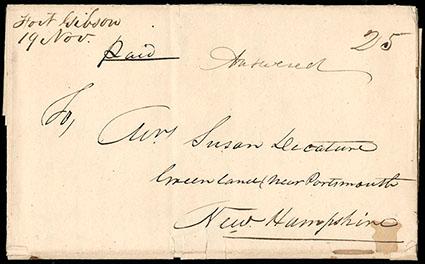 Fort Gibson
19 Nov.
Paid
Answered
25
To,
Mrs Susan Decature
Greenland (near Portsmouth
New Hampshire